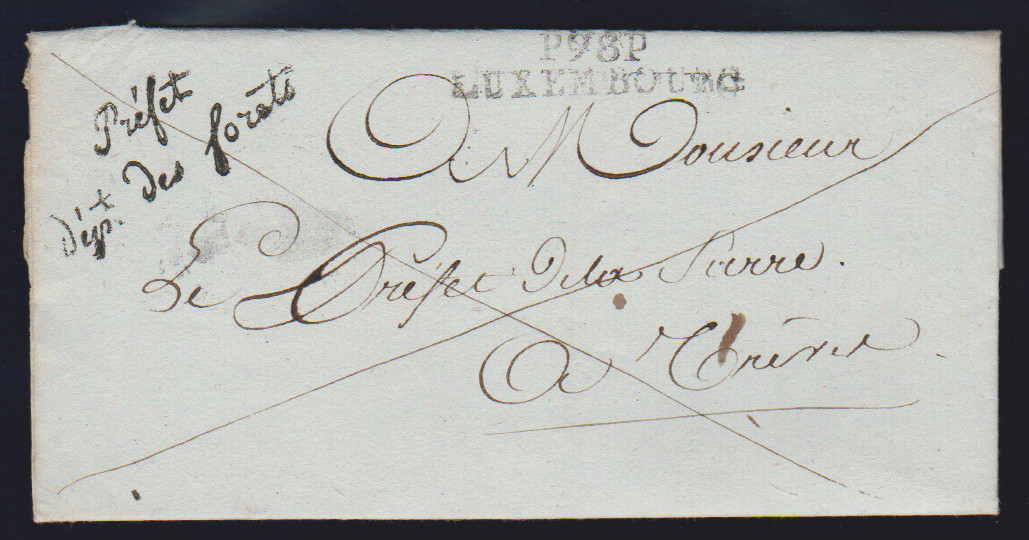 P98P
LUXEMBOURG
Préfet
Dépt. des forêts
A Monsieur
Le Préfet de la Sarre.
A Trèves.